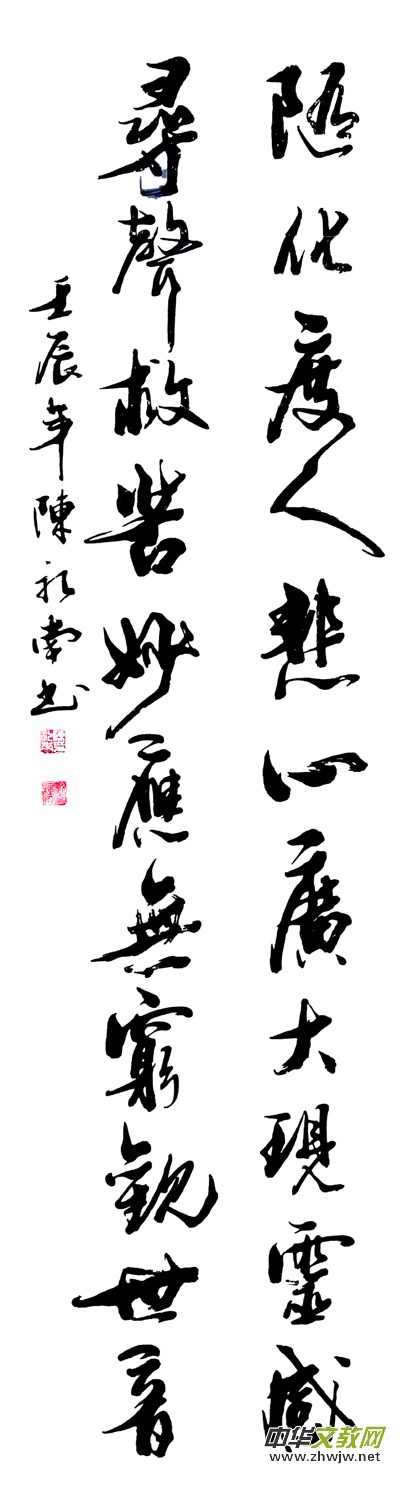 随化度人悲心廣大現靈感
尋聲救苦妙應無窮觀世音
壬辰年陳永南书
中华文教网
www.zhwjw.net